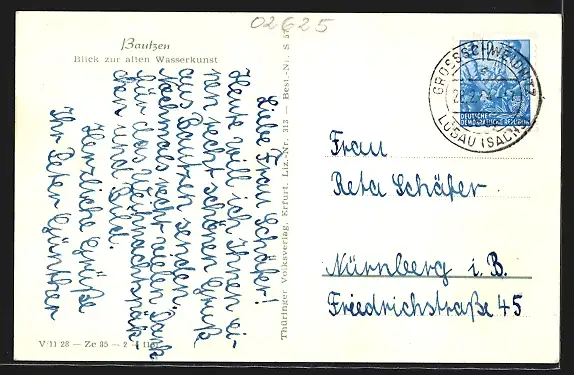 02625
Bautzen
Blick zur alten Wasserkunst
Liebe Frau Schäfer!
Heute will ich Ihnen ei-
nen recht schönen Gruß
aus Bautzen senden.
Nochmals recht vielen Dank
für das Weihnachtspäk-
chen und Bild.
Herzliche Grüße
Ihr Peter Günther
V/11 28 — Ze 85 — 2 —
Thüringer Volksverlag, Erfurt. Liz.-Nr. 313 — Best.-Nr. S 57
GROSSSCHWEIDNITZ
LÖBAU (SACHS)
DEUTSCHE
DEMOKRATISCHE REPUBLIK
Frau
Reta Schäfer
Nürnberg i. B.
Friedrichstraße 45